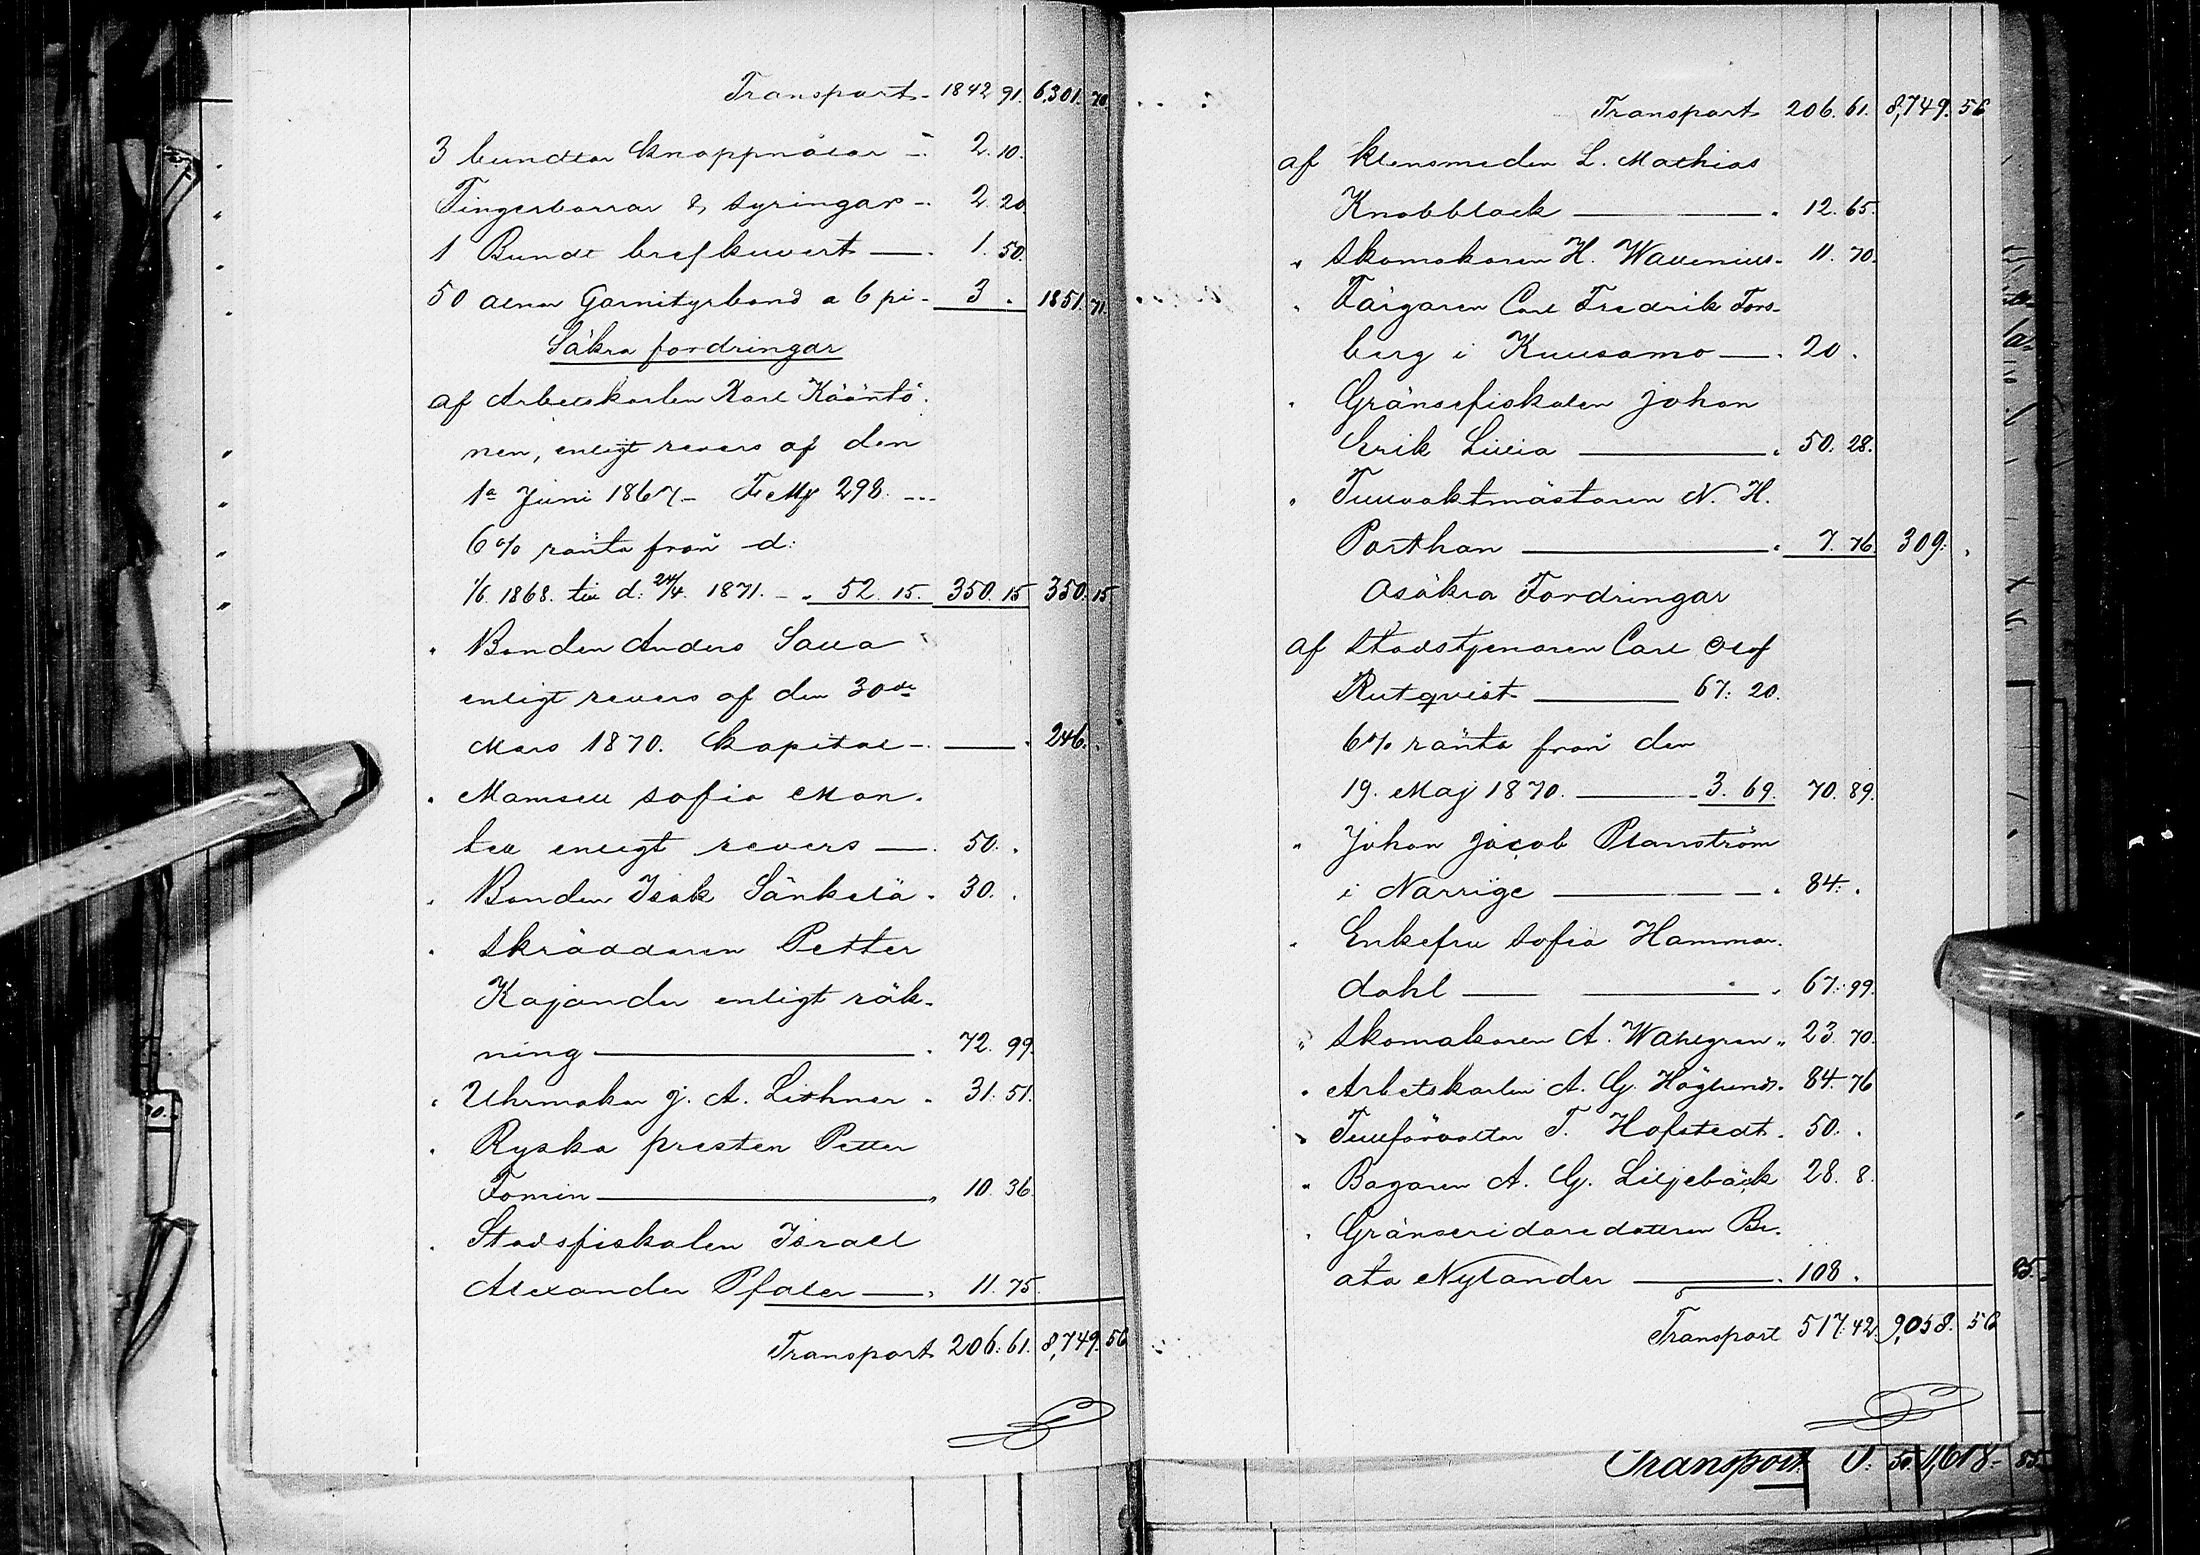 Transport 1842 91. 6,301. 70.
3 bundtar knappnålar 2. 10.
Fingerborrar & syringar 2. 20
1 Bundt brefkuvert 1. 50.
50 alnar Garnityrband a 6 pi 3 . 1851. 71.
Säkra fordringar
af Arbetskarlen Karl Kääntö-
nen, enligt revers af den
1a Juni 1867 F.Mk 298. ---
6 % ränta från d:
1/6. 1868. till d: 24/4. 1871. 52. 15. 350. 15 350. 15
" Bonden Anders Salla
enligt revers af den 30de
Mars 1870. Kapital 246. .
" Mamsell Sofia Mon-
tell enligt revers 50. .
" Bonden Isak Sänkelä 30. .
" Skräddaren Petter
Kajander enligt räk-
ning 72. 99.
" Uhrmakar J. A. Lithner 31. 51.
" Ryska presten Petter
Fomin 10. 36.
" Stadsfiskalen Israel
Alexander Pfaler 11. 75.
Transport 206. 61. 8,749. 56
Transport 206. 61. 8,749. 56
af Klensmeden L. Mathias
Knobblock 12. 65.
" Skomakaren H. Wallenius 11. 70.
" Färgaren Carl Fredrik Fors-
berg i Kuusamo 20 .
" Gränsefiskalen Johan
Erik Lilia 50. 28.
" Tullvaktmästaren N. H.
Porthan 7. 76. 309. .
Osäkra Fordringar
af Stadstjenaren Carl Olof
Rutqvist 67: 20.
6 % ränta från den
19. Maj 1870. 3. 69. 70. 89.
" Johan Jacob Planström
i Norrige 84. .
" Enkefru Sofia Hammar-
dahl 67. 99.
" Skomakaren A. Wahlgren 23. 70.
" Arbetskarlen A. G. Höglund 84. 76
" Tullförvaltar T. Hofstedt 50. .
" Bagaren A. G. Liljebäck 28. 8.
" Gränseridaredottren Be-
ata Nylander 108 .
Transport 517. 42. 9,058. 56
Transport